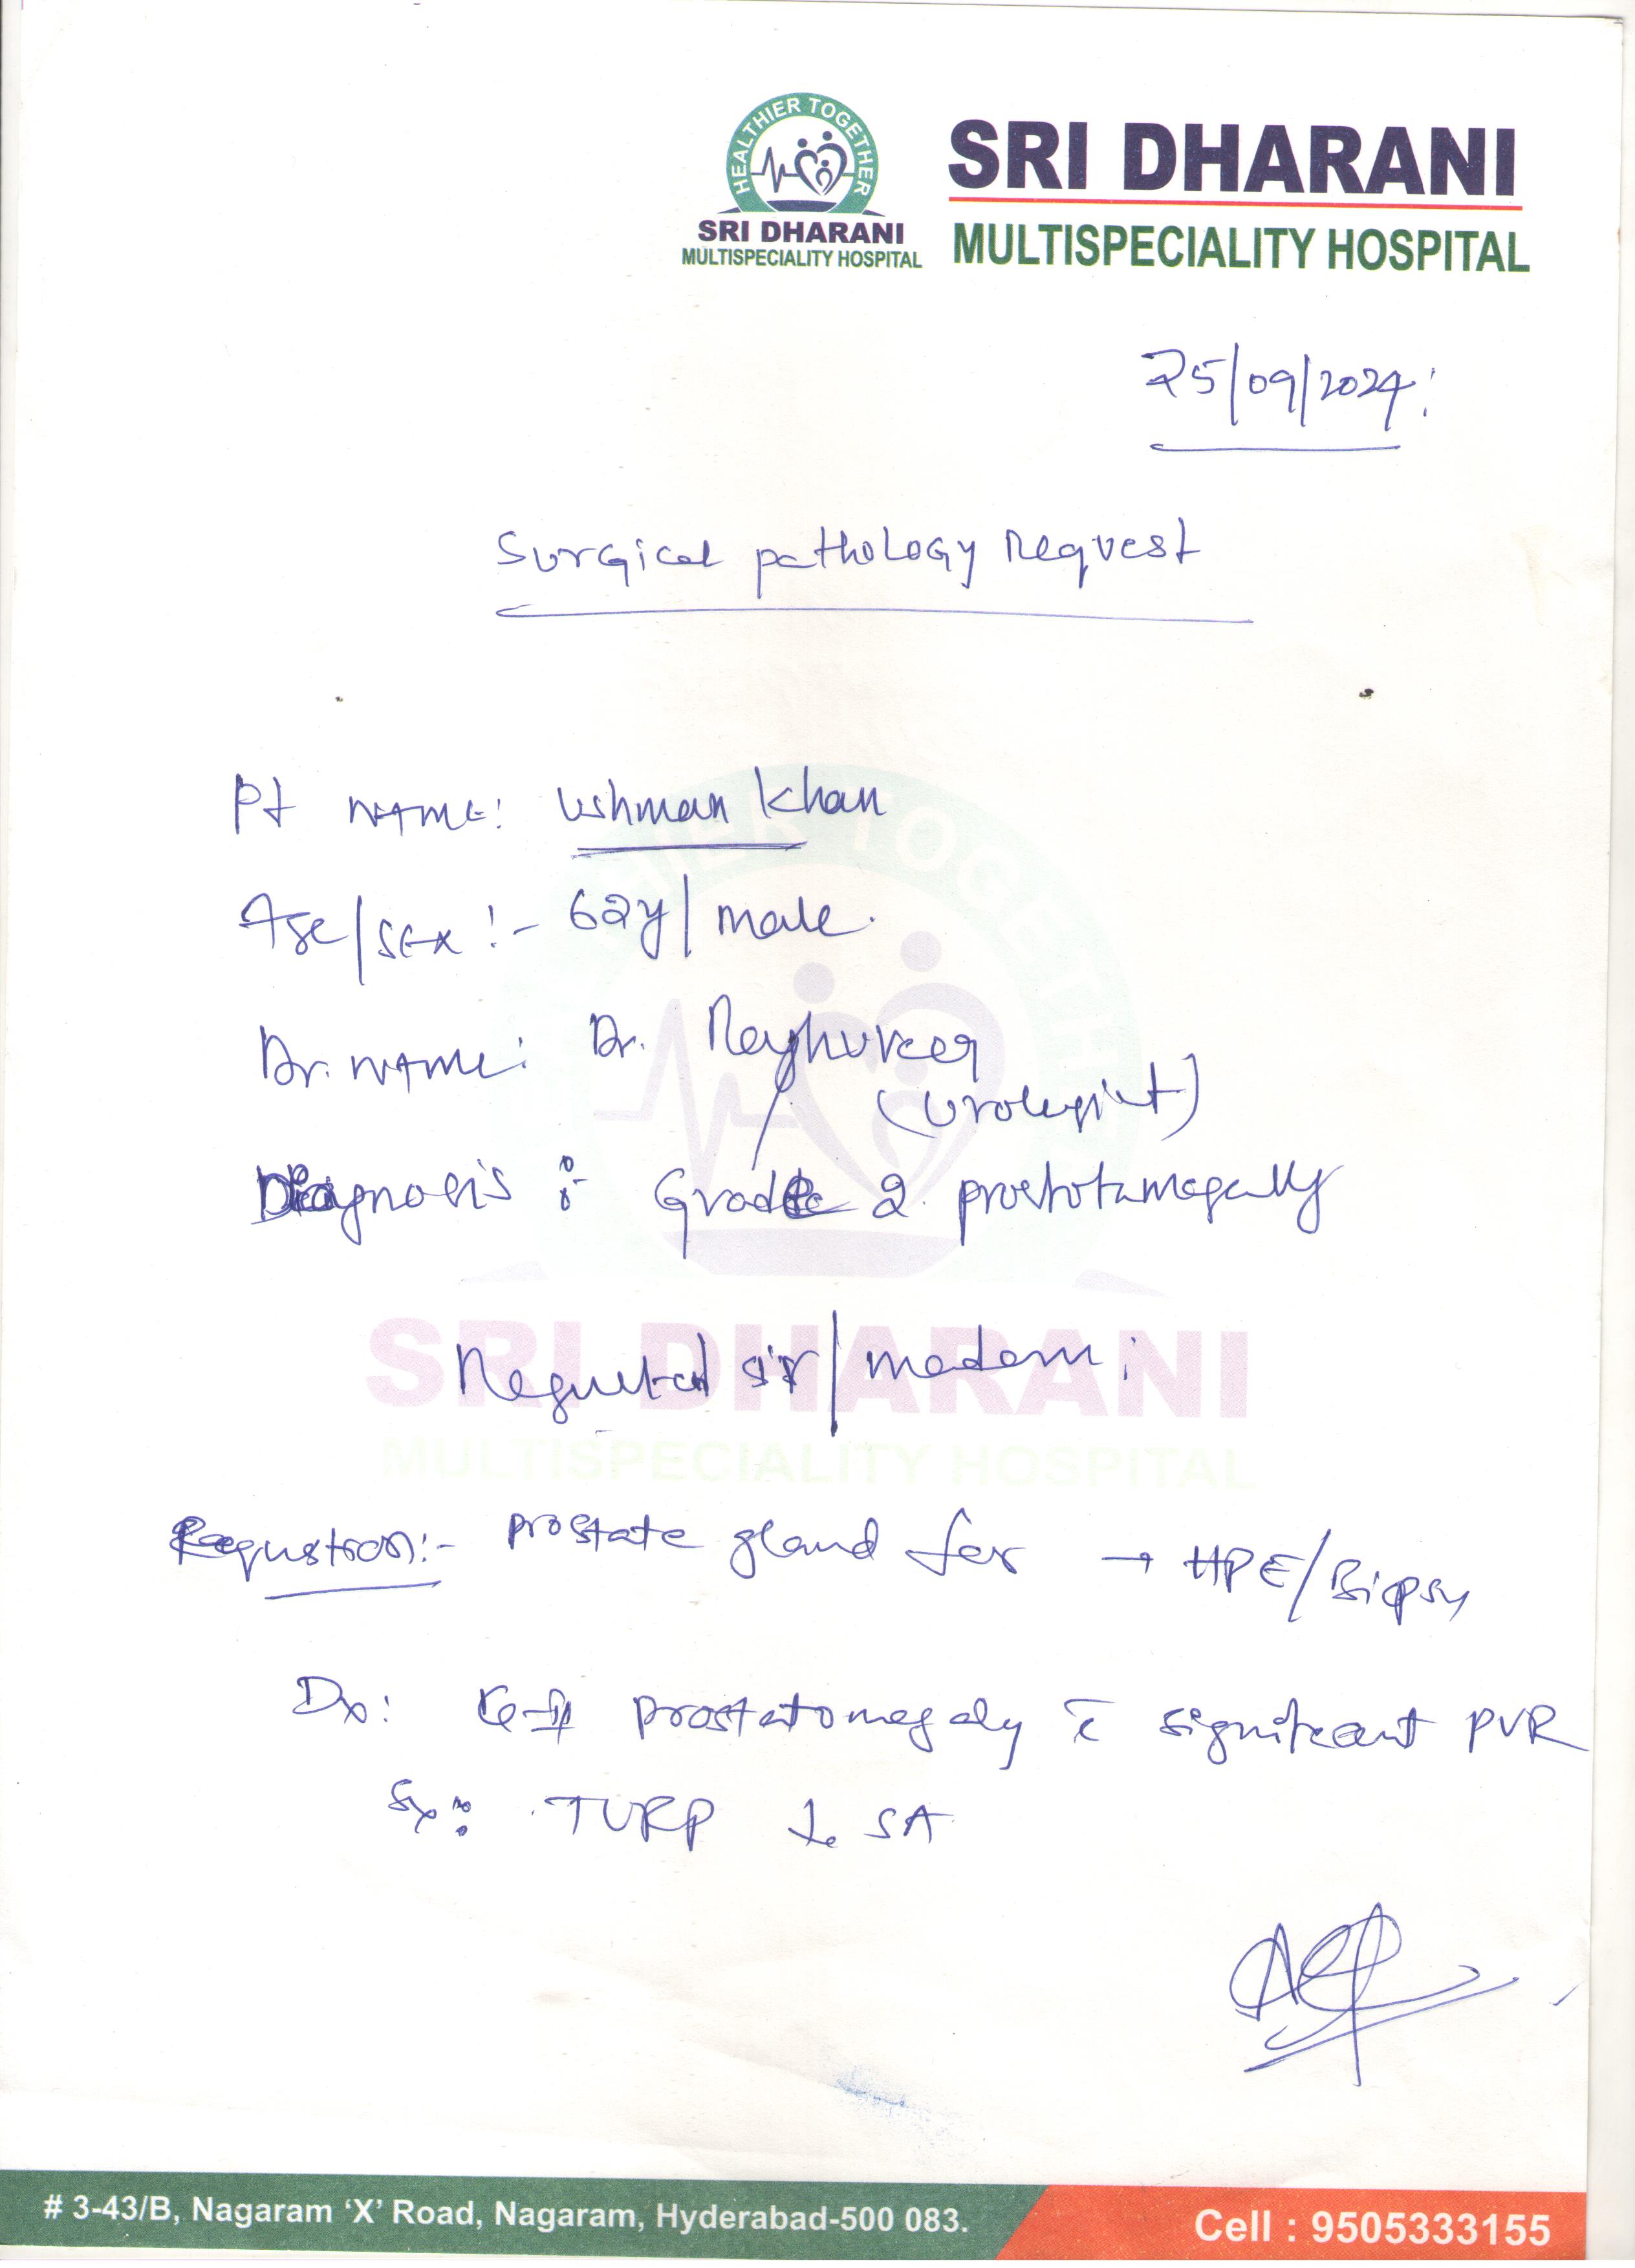 HEALTHIER TOGETHER
SRI DHARANI
MULTISPECIALITY HOSPITAL
SRI DHARANI
MULTISPECIALITY HOSPITAL
25/09/2024:
Surgical pathology Request
Pt NAME: Ushman Khan
Age/SEX :- 62y/male.
Dr. NAME: Dr. Raghuveer
(Urologist)
Diagnosis :- Grade 2. prostotamegally
sir/madam:
:- prostate gland for → HPE/Biopsy
Dx: G-II prostatomegaly c̄ significant PVR
Sx: TURP SA
SRI DHARANI
MULTISPECIALITY HOSPITAL
# 3-43/B, Nagaram ‘X’ Road, Nagaram, Hyderabad-500 083.
Cell : 9505333155